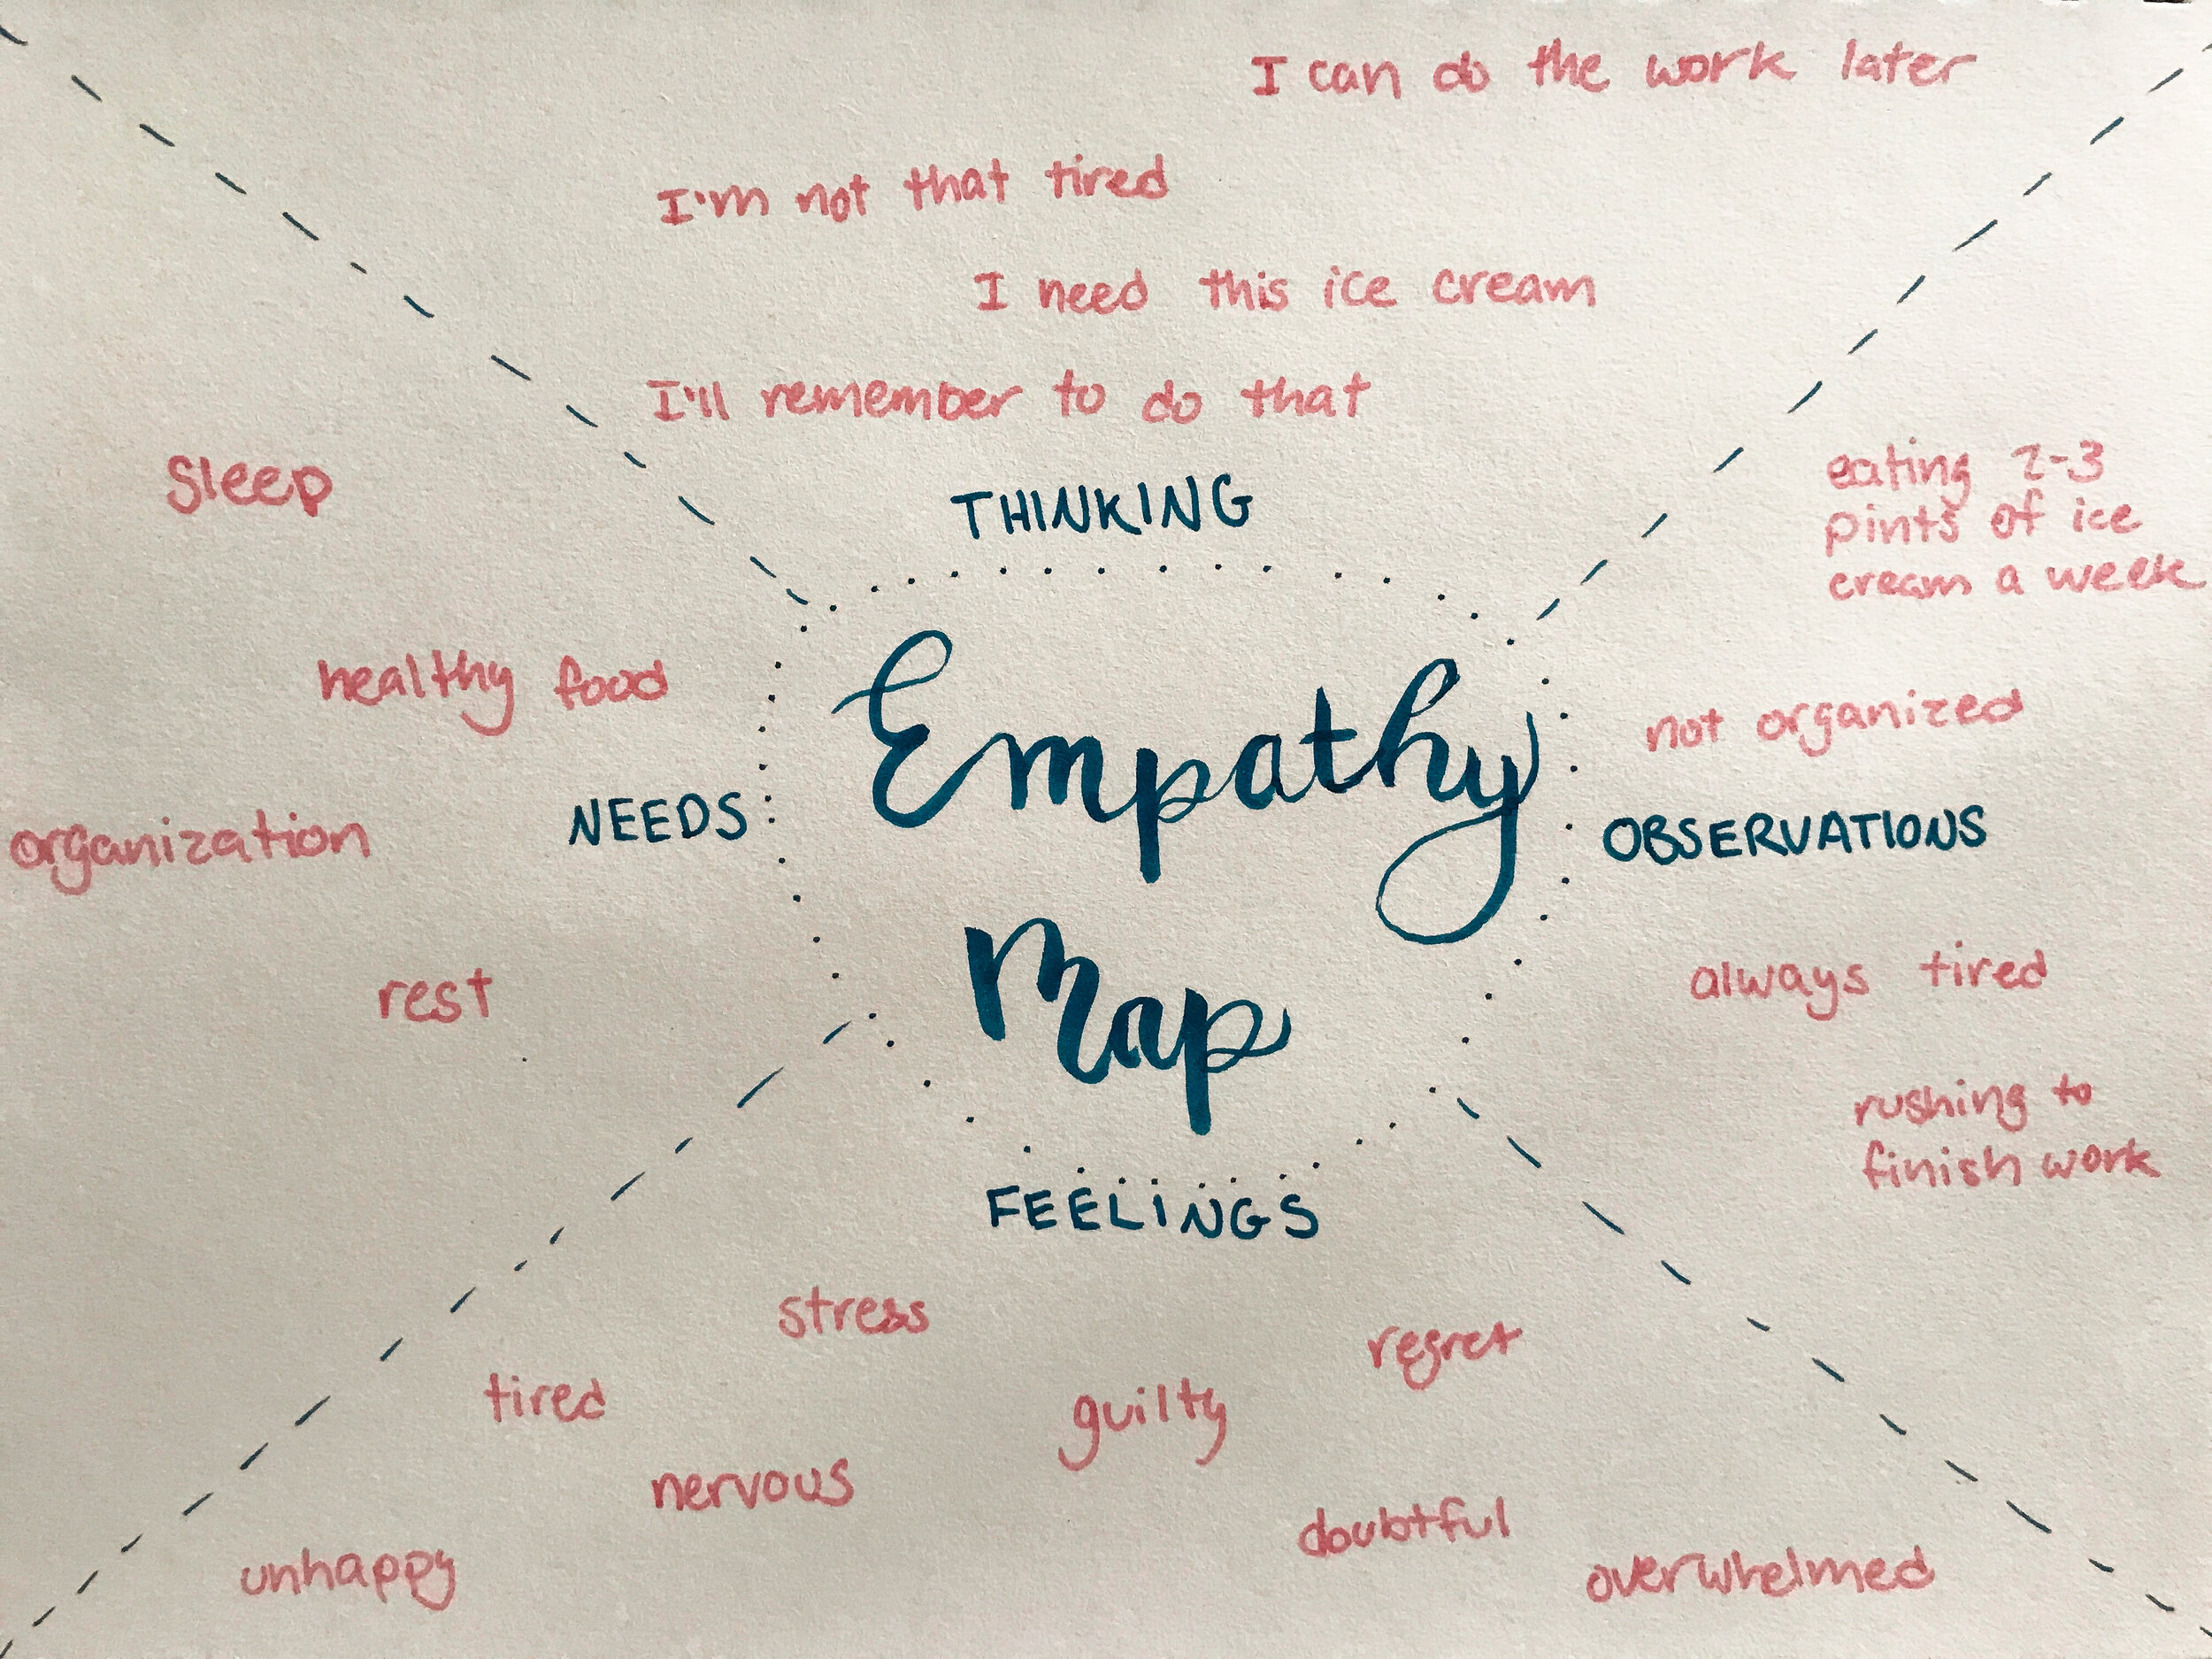 I can do the work later
I'm not that tired
I need this ice cream
I'll remember to do that
THINKING
Sleep
healthy food
NEEDS
organization
rest
Empathy
Map
eating 2-3
pints of ice
cream a week
not organized
OBSERVATIONS
always tired
rushing to
finish work
FEELINGS
stress
regret
tired
guilty
nervous
doubtful
unhappy
overwhelmed